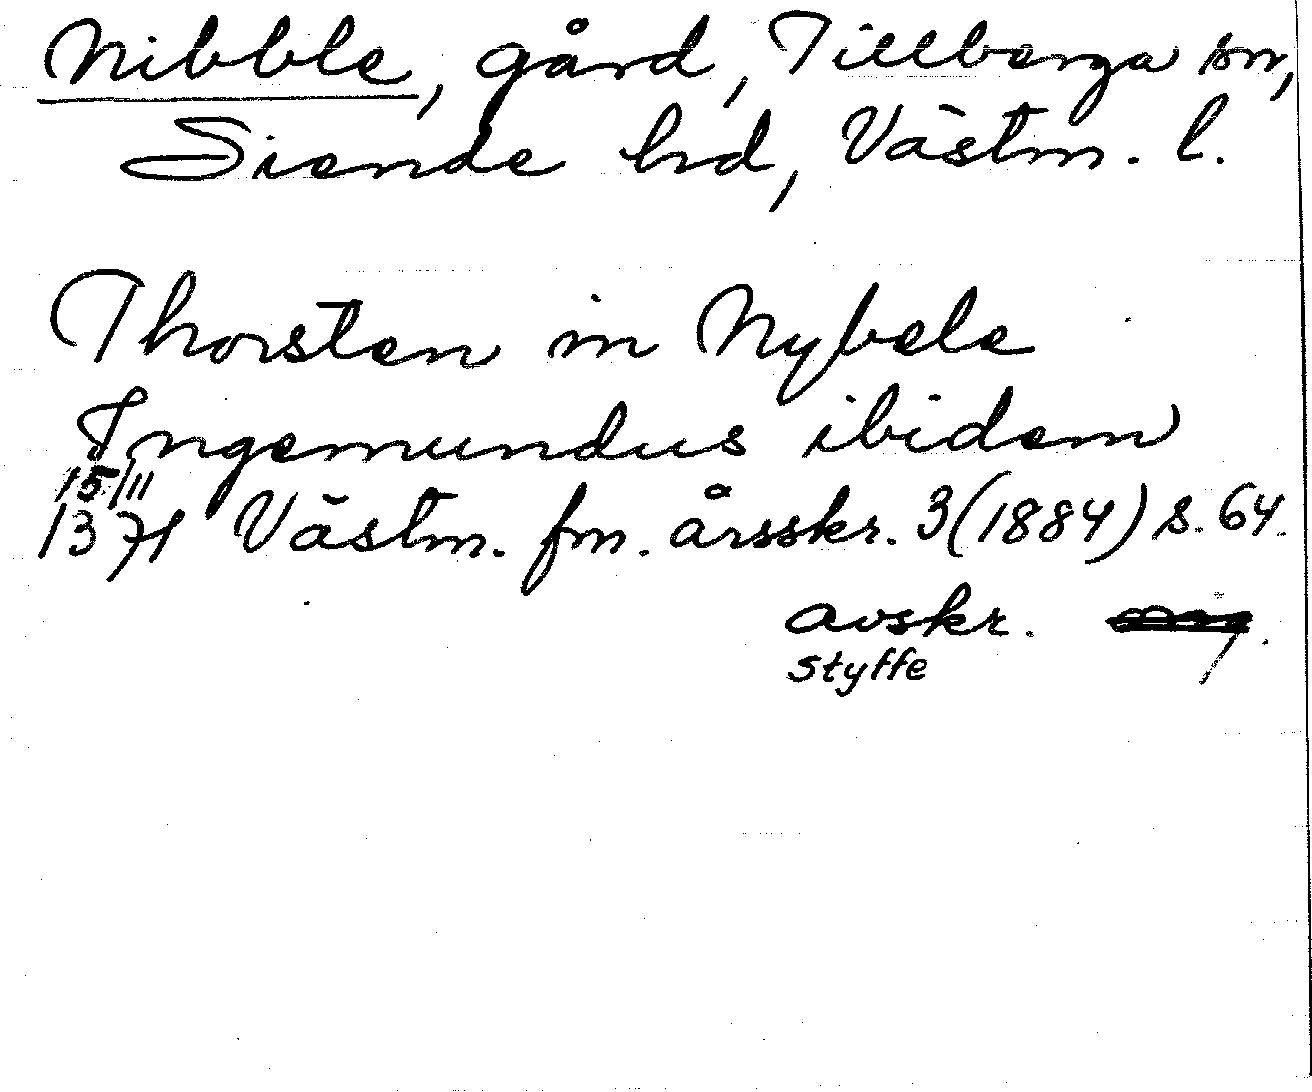 Nibble, gård, Tillberga sn,
Siende hd, Västm. l.
Thorsten in Nybele
Ingemundus ibidem
15/11
1371 Västm. fm. årsskr. 3 (1884) s. 64.
avskr.
Styffe